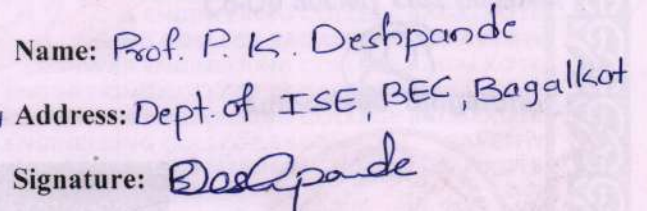 Name: Prof. P. K. Deshpande
Address: Dept. of ISE, BEC, Bagalkot
Signature: Deshpande